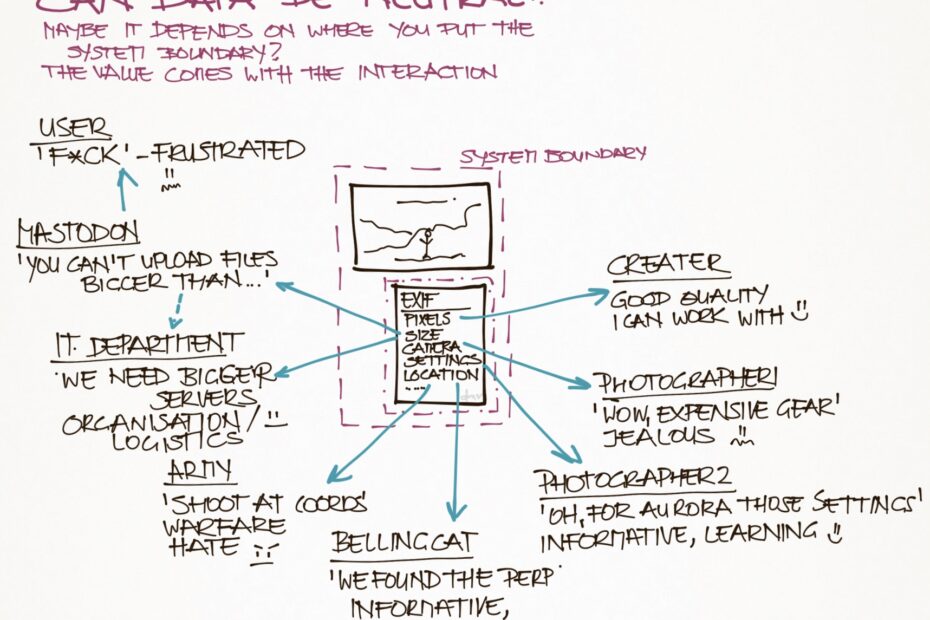 CAN DATA BE NEUTRAL?
MAYBE IT DEPENDS ON WHERE YOU PUT THE
SYSTEM BOUNDARY?
THE VALUE COMES WITH THE INTERACTION
USER
'F*CK' - FRUSTRATED
SYSTEM BOUNDARY
MASTODON
'YOU CAN'T UPLOAD FILES
BIGGER THAN...'
IT DEPARTMENT
'WE NEED BIGGER
SERVERS
ORGANISATION/
LOGISTICS
EXIF
PIXELS
SIZE
CAMERA
SETTINGS
LOCATION
....
CREATER
GOOD QUALITY
I CAN WORK WITH
PHOTOGRAPHER1
'WOW, EXPENSIVE GEAR'
JEALOUS
PHOTOGRAPHER2
'OH, FOR AURORA THOSE SETTINGS'
INFORMATIVE, LEARNING
ARMY
'SHOOT AT COORDS'
WARFARE
HATE
BELLINGCAT
'WE FOUND THE PERP'
INFORMATIVE,